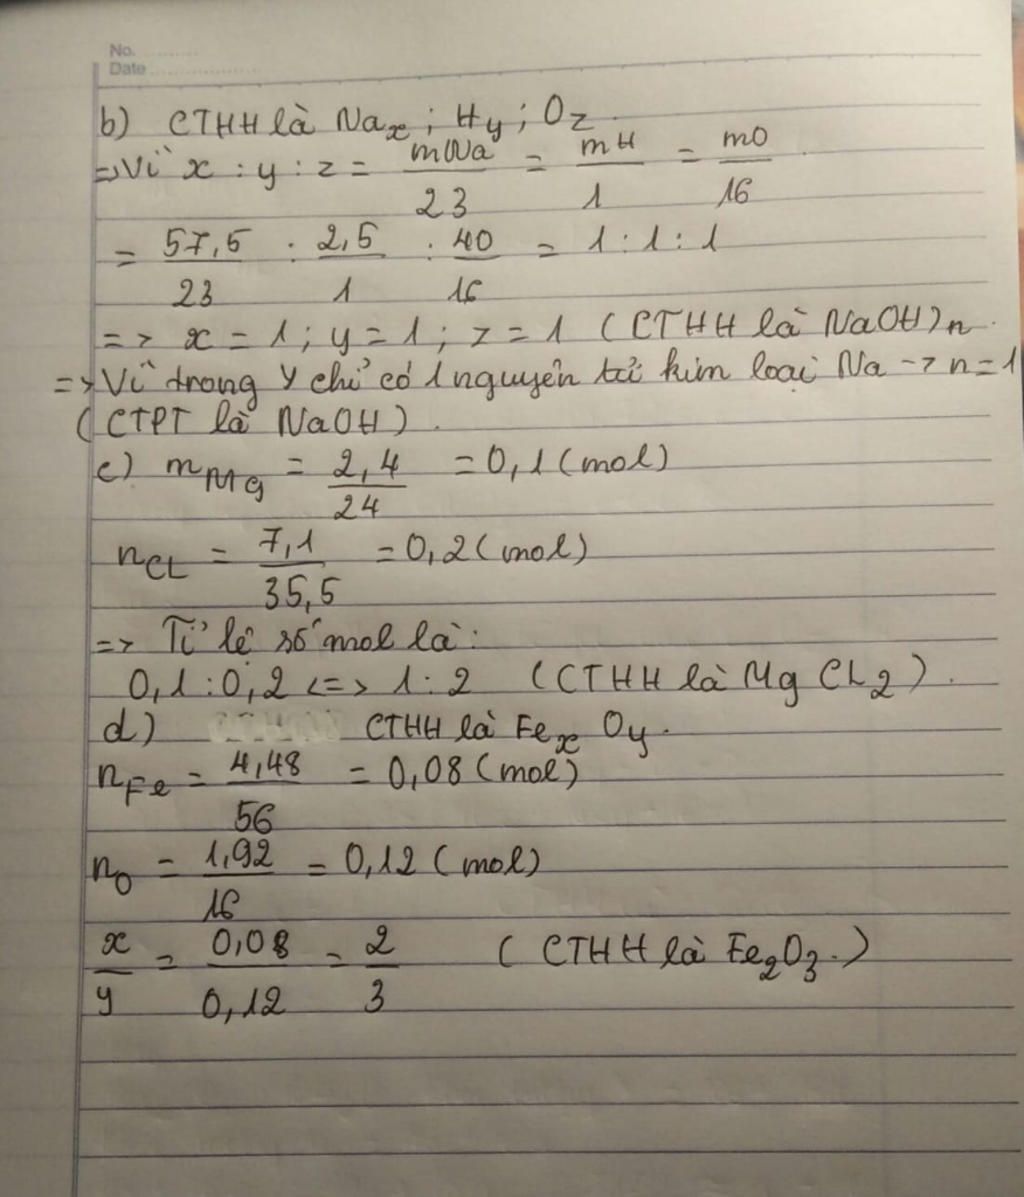 No.
Date
b) CTHH là Naₓ ; Hy ; Oz
=> Vì x : y : z = mNa/23 = mH/1 = mO/16
= 57,5/23 : 2,5/1 : 40/16 = 1 : 1 : 1
=> x = 1 ; y = 1 ; z = 1 (CTHH là NaOH)n.
=> Vì trong Y chỉ có 1 nguyên tử kim loại Na -> n = 1
(CTPT là NaOH).
c) mMg = 2,4/24 = 0,1 (mol)
nCl = 7,1/35,5 = 0,2 (mol)
=> Tỉ lệ số mol là:
0,1 : 0,2 <=> 1 : 2 (CTHH là MgCl₂).
d) CTHH là FeₓOy.
nFe = 4,48/56 = 0,08 (mol)
nO = 1,92/16 = 0,12 (mol)
x/y = 0,08/0,12 = 2/3 (CTHH là Fe₂O₃.)